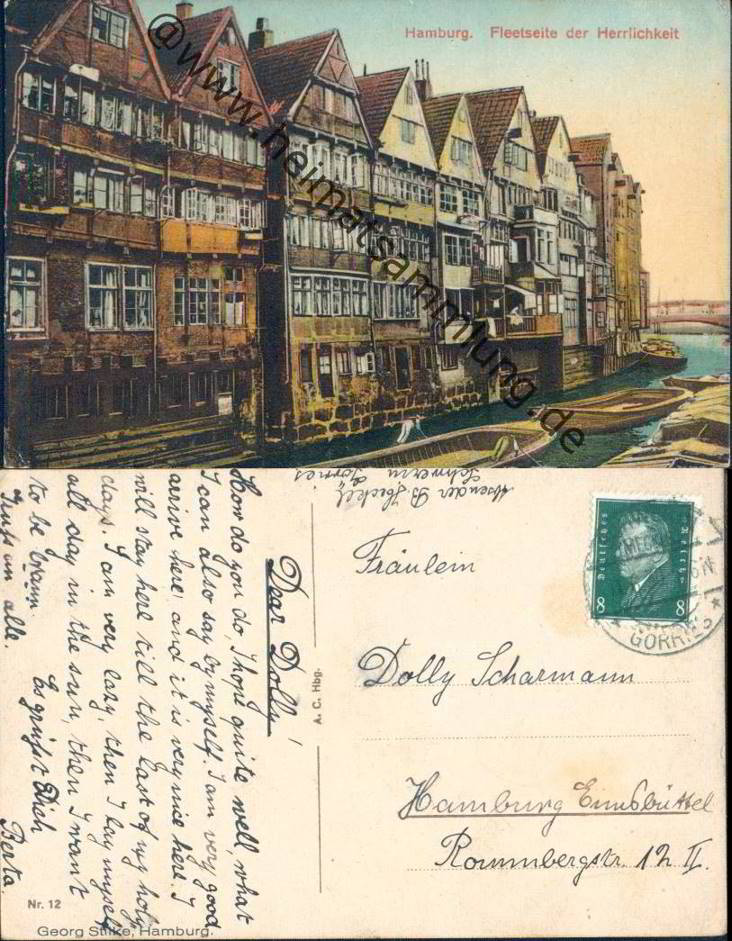 Hamburg. Fleetseite der Herrlichkeit
@www.heimatsammlung.de
Dear Dolly!
How do you do, I hope quite well, what
I can also say by myself. I am very good
arrive here, and it is very nice here. I
will stay here till the last of my holy
days. I am very lazy, then I lay myself
all day in the sun, then I want
to be braun.
Es grüßt Dich
Berta.
Gruß an alle.
A. C. Hbg.
Nr. 12
Georg Stilke, Hamburg.
Absender B.
Schwerin Görries
Deutsches Reich
8 8
GÖRRIES
Fräulein
Dolly Scharmann
Hamburg Eimsbüttel
Rombergstr. 12 II.